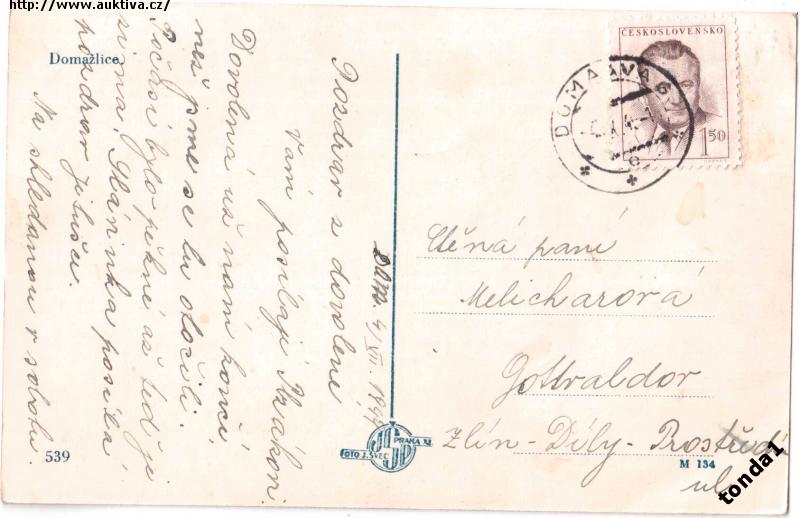 http://www.auktiva.cz/
Domažlice.
Pozdrav z dovolené
vám posílají Ptzákoni
Dovolená už nám končí
než jsme se tu otočili.
Počasí bylo pěkné až teď je
zima. Sláninka posílá
pozdrav Jitušce.
Na shledanou v sobotu.
Dom. 4/VII. 1949
539
FOTO J. ŠVEC
PRAHA XI.
ČESKOSLOVENSKO
1.50
Ctěná paní
Melicharová
Gottvaldov
Zlín - Díly - Prostřední
ul.
M 134
tonda1